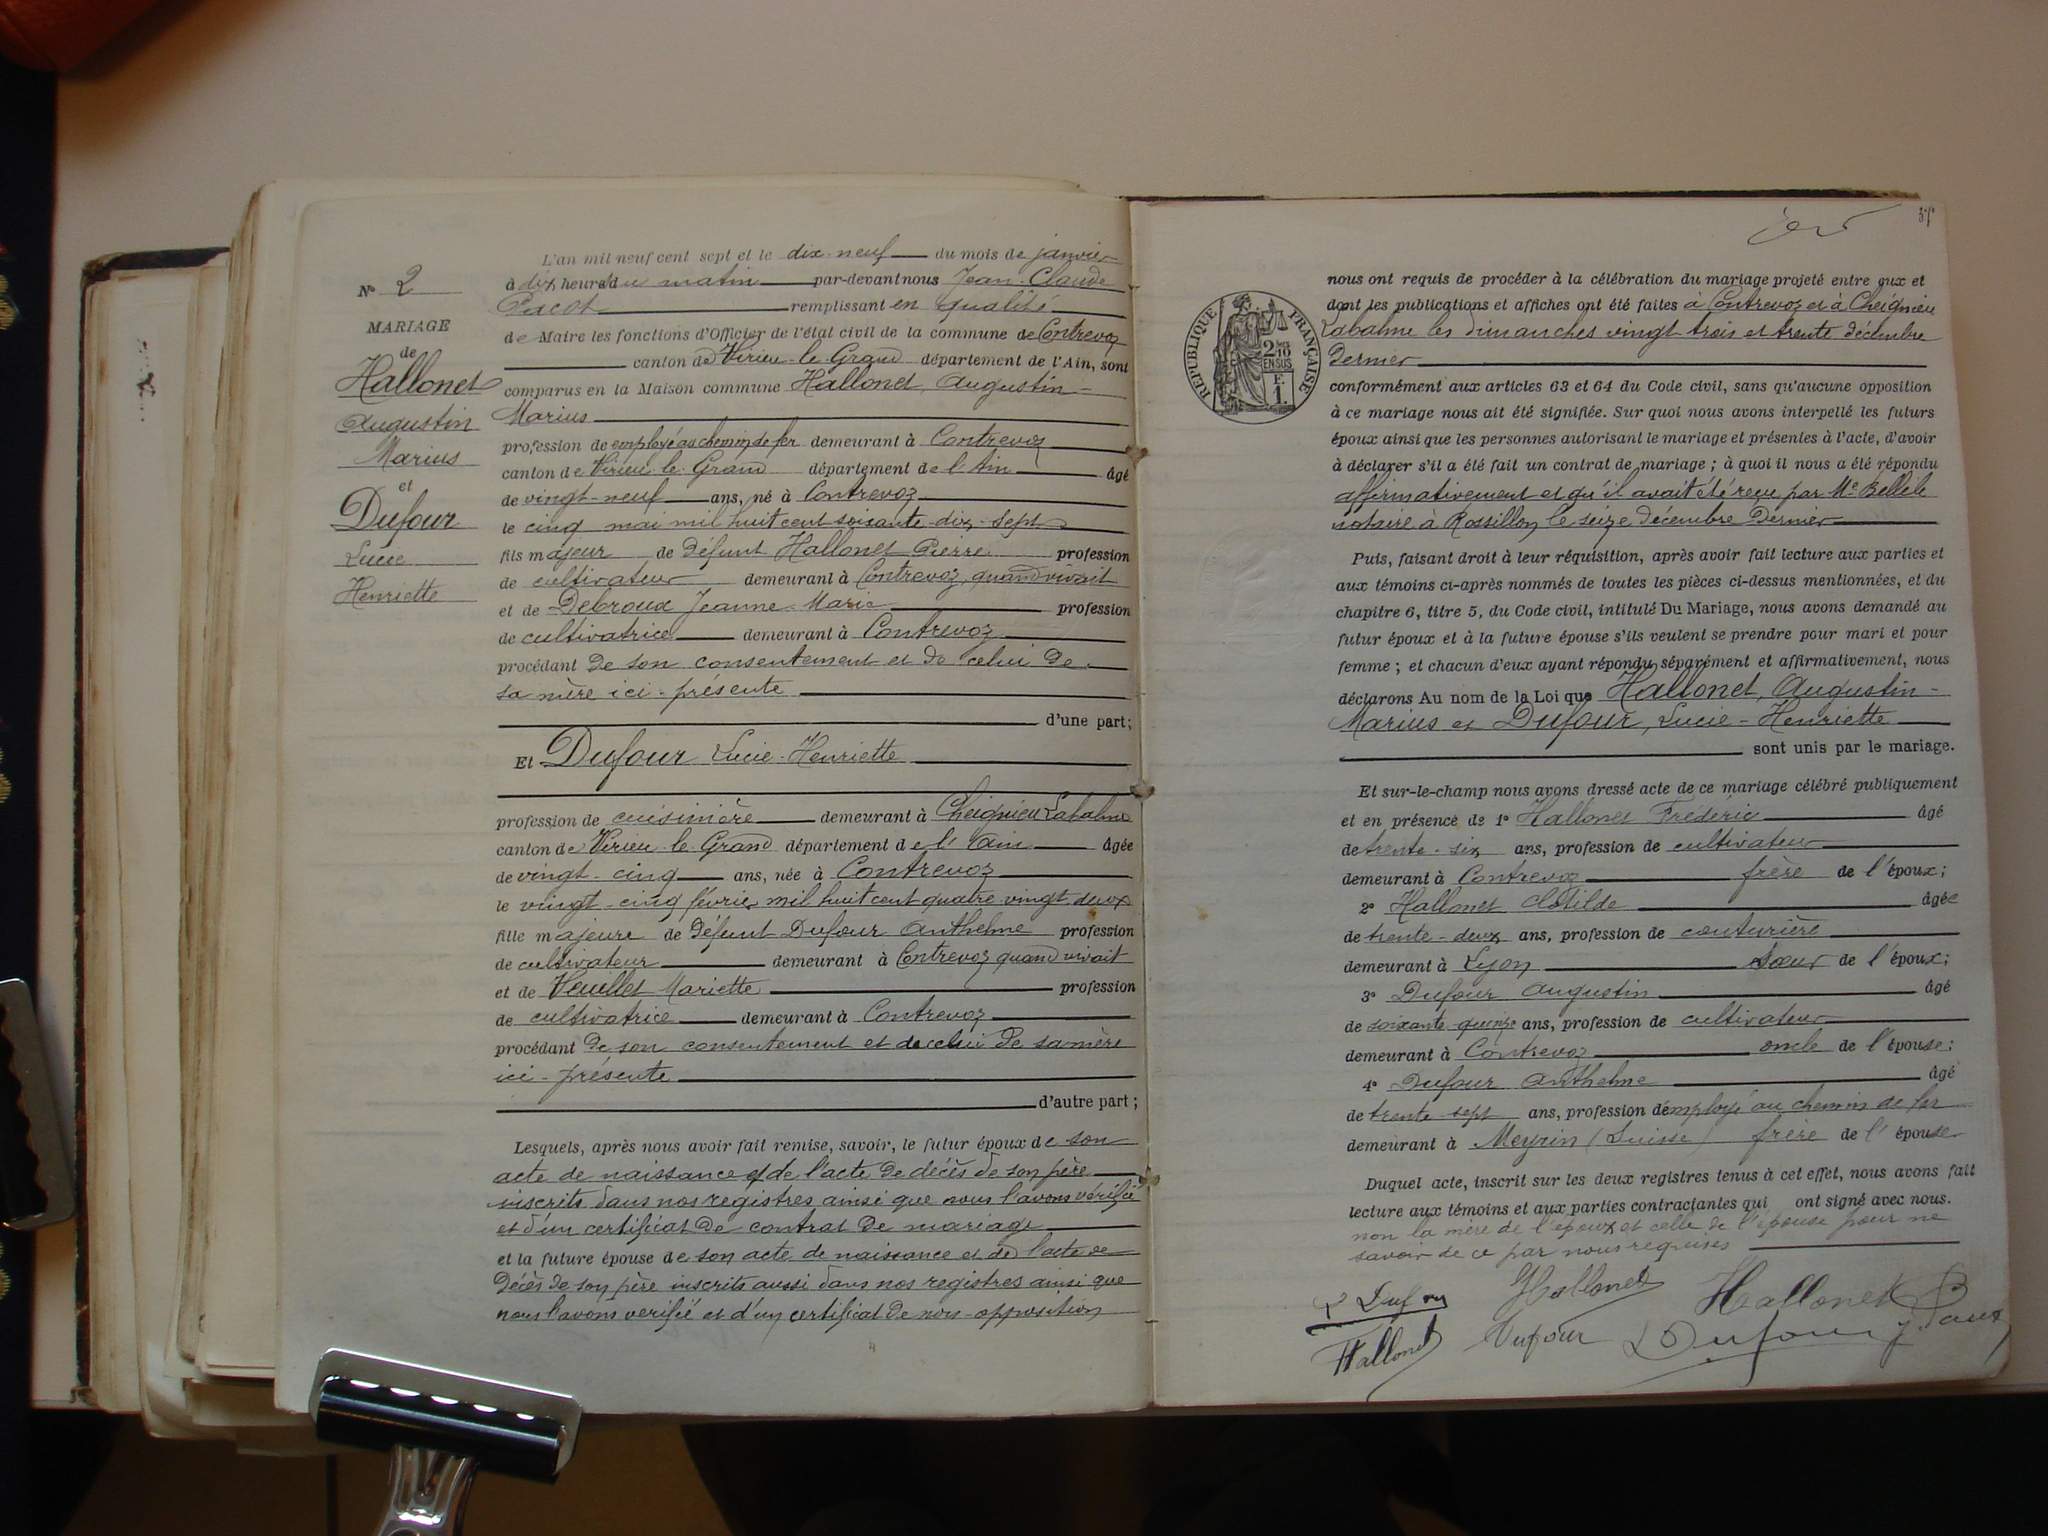 N° 2
MARIAGE
de
Hallonet
Augustin
Marius
et
Dufour
Lucie
Henriette
L'an mil neuf cent sept et le dix-neuf du mois de janvier
à dix heures du matin par-devant nous Jean-Claude
remplissant en qualité
de Maire les fonctions d'Officier de l'état civil de la commune de Contrevoz
canton de Virieu-le-Grand département de l'Ain, sont
comparus en la Maison commune Hallonet, Augustin-
Marius
profession de employé au chemin de fer demeurant à Contrevoz
canton de Virieu-le-Grand département de l'Ain âgé
de vingt-neuf ans, né à Contrevoz
le cinq mai mil huit cent soixante-dix-sept
fils majeur de défunt Hallonet Pierre profession
de cultivateur demeurant à Contrevoz, quand vivait
et de Debroux Jeanne-Marie profession
de cultivatrice demeurant à Contrevoz
procédant de son consentement et de celui de
sa mère ici-présente
d'une part;
Et Dufour Lucie-Henriette
profession de cuisinière demeurant à Cheignieu Labalme
canton de Virieu-le-Grand département de l'Ain âgée
de vingt-cinq ans, née à Contrevoz
le vingt-cinq février mil huit cent quatre-vingt deux
fille majeure de défunt Dufour Anthelme profession
de cultivateur demeurant à Contrevoz quand vivait
et de Veuillet Mariette profession
de cultivatrice demeurant à Contrevoz
procédant de son consentement et de celui de sa mère
ici-présente
d'autre part;
Lesquels, après nous avoir fait remise, savoir, le futur époux de son
acte de naissance et de l'acte de décès de son père
inscrits dans nos registres ainsi que nous l'avons vérifié
et d'un certificat de contrat de mariage
et la future épouse de son acte de naissance et de l'acte de
décès de son père inscrits aussi dans nos registres ainsi que
nous l'avons verifié et d'un certificat de non-opposition
RÉPUBLIQUE FRANÇAISE
2/10
EN SUS
F.
1.
nous ont requis de procéder à la célébration du mariage projeté entre eux et
dont les publications et affiches ont été faites à Contrevoz et à Cheignieu
Labalme les dimanches vingt-trois et trente décembre
dernier
conformément aux articles 63 et 64 du Code civil, sans qu'aucune opposition
à ce mariage nous ait été signifiée. Sur quoi nous avons interpellé les futurs
époux ainsi que les personnes autorisant le mariage et présentes à l'acte, d'avoir
à déclarer s'il a été fait un contrat de mariage; à quoi il nous a été répondu
affirmativement et qu'il avait été reçu par Me
notaire à Rossillon le seize décembre dernier
Puis, faisant droit à leur réquisition, après avoir fait lecture aux parties et
aux témoins ci-après nommés de toutes les pièces ci-dessus mentionnées, et du
chapitre 6, titre 5, du Code civil, intitulé Du Mariage, nous avons demandé au
futur époux et à la future épouse s'ils veulent se prendre pour mari et pour
femme; et chacun d'eux ayant répondu séparément et affirmativement, nous
déclarons Au nom de la Loi que Hallonet, Augustin-
Marius et Dufour, Lucie-Henriette
sont unis par le mariage.
Et sur-le-champ nous avons dressé acte de ce mariage célébré publiquement
et en présence de 1° Hallonet Frédéric âgé
de trente-six ans, profession de cultivateur
demeurant à Contrevoz frère de l'époux;
2° Hallonet Clotilde âgée
de trente-deux ans, profession de couturière
demeurant à Lyon soeur de l'époux;
3° Dufour Augustin âgé
de soixante-quinze ans, profession de cultivateur
demeurant à Contrevoz oncle de l'épouse;
4° Dufour Anthelme âgé
de trente-sept ans, profession d'employé au chemin de fer
demeurant à Meyrin (Suisse) frère de l'épouse
Duquel acte, inscrit sur les deux registres tenus à cet effet, nous avons fait
lecture aux témoins et aux parties contractantes qui ont signé avec nous.
non la mère de l'époux et celle de l'épouse pour ne
savoir de ce par nous requises
Dufour Hallonet Hallonet
Hallonet Dufour L Dufour